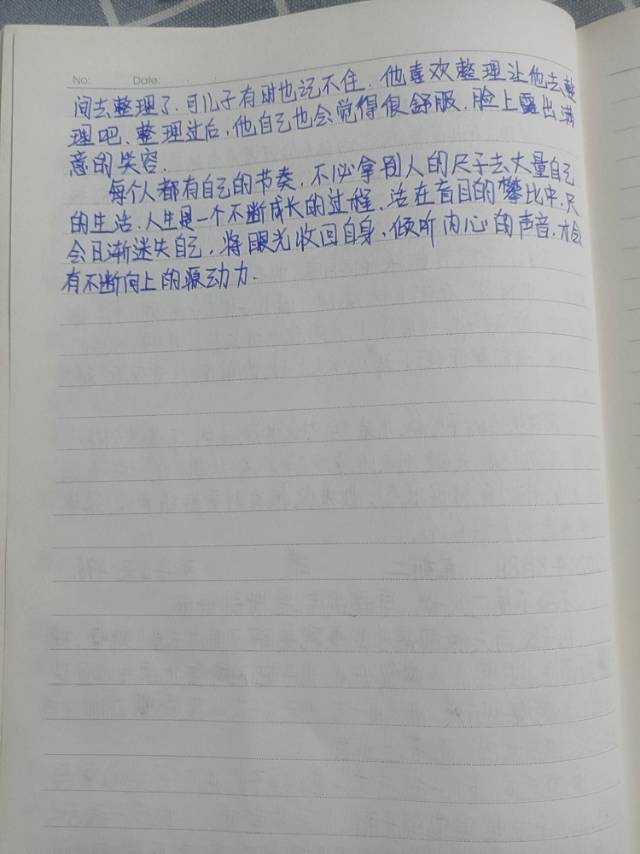 No: Date:
间去整理了.可儿子有时也记不住.他喜欢整理让他去整
理吧.整理过后,他自己也会觉得很舒服.脸上露出满
意的笑容.
每个人都有自己的节奏.不必拿别人的尺子去丈量自己
的生活.人生是一个不断成长的过程.活在盲目的攀比中.只
会日渐迷失自己.将眼光收回自身,倾听内心的声音.才会
有不断向上的源动力.